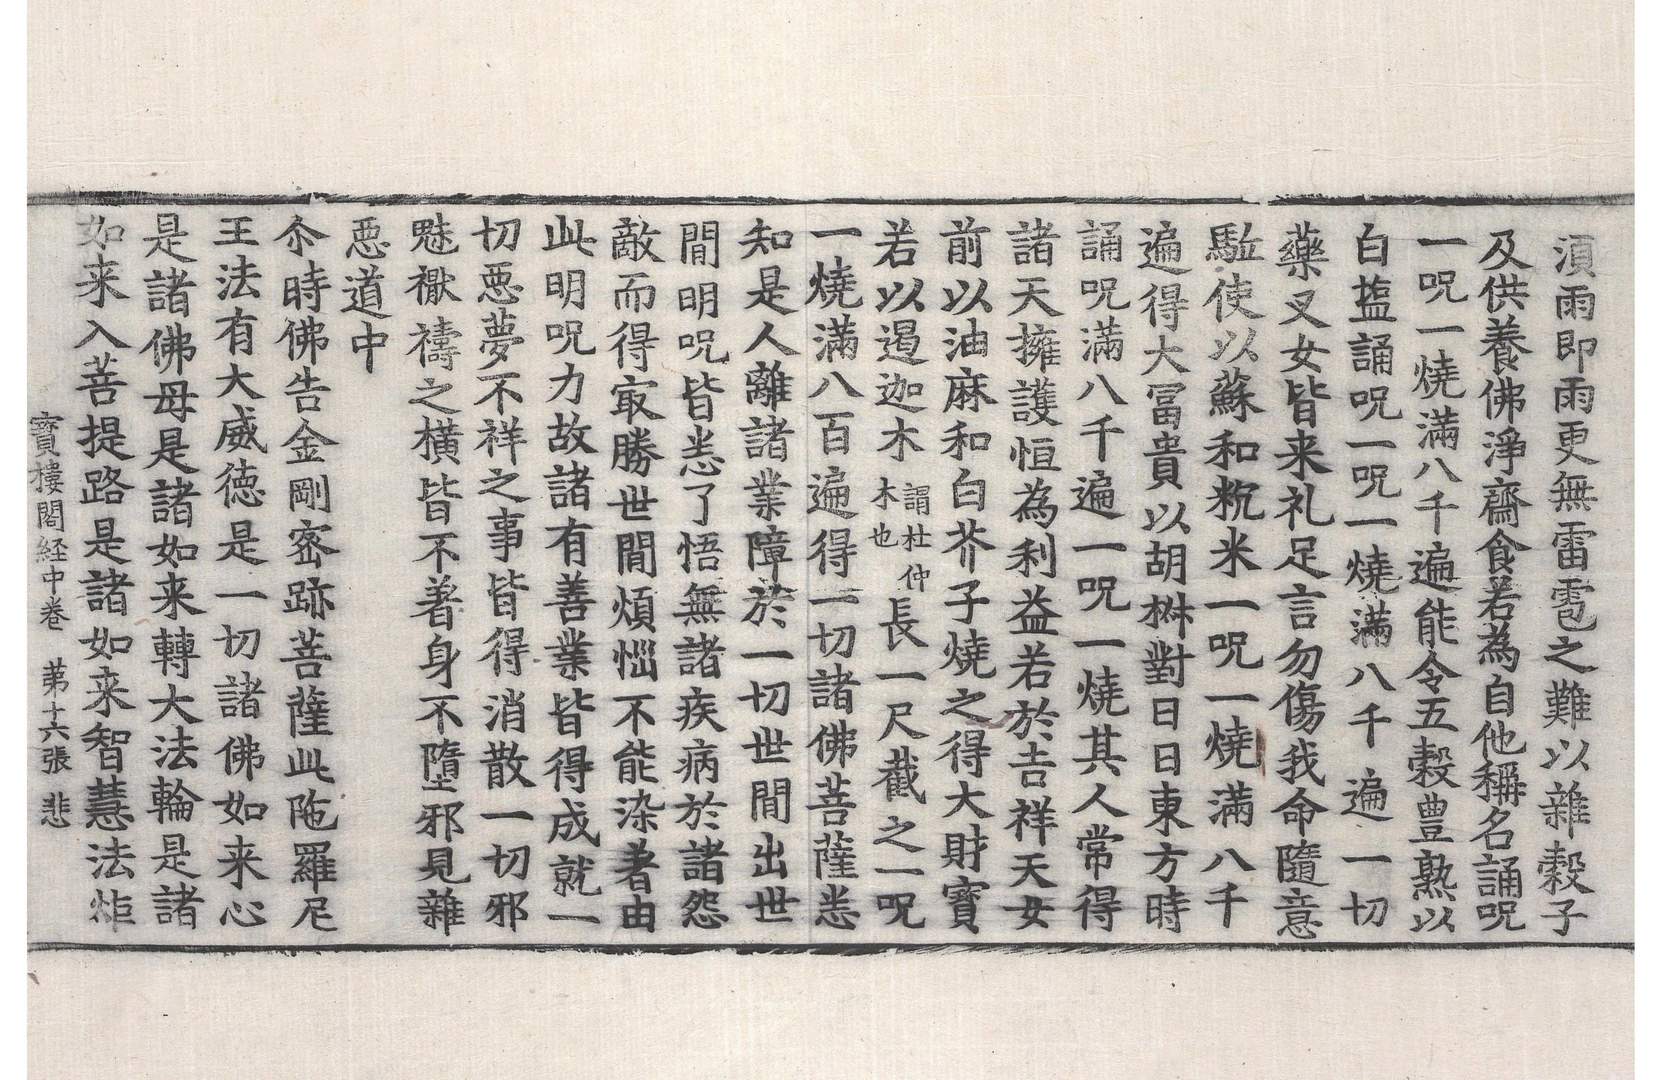 須雨即雨更無雷雹之難以雜穀子
及供養佛淨齋食若為自他稱名誦呪
一呪一燒滿八千遍能令五穀豊熟以
白塩誦呪一呪一燒滿八千遍一切
藥叉女皆来礼足言勿傷我命隨意
駈使以蘇和粇米一呪一燒滿八千
遍得大冨貴以胡椒對日日東方時
誦呪滿八千遍一呪一燒其人常得
諸天擁護恒為利益若於吉祥天女
前以油麻和白芥子燒之得大財寶
若以遏迦木謂杜仲木也長一尺截之一呪
一燒滿八百遍得一切諸佛菩薩悉
知是人離諸業障於一切世間出世
間明呪皆悉了悟無諸疾病於諸怨
敵而得㝡勝世間煩惱不能染著由
此明呪力故諸有善業皆得成就一
切惡夢不祥之事皆得消散一切邪
魅禩禱之橫皆不著身不墮邪見雜
惡道中
尒時佛告金剛密跡菩薩此陁羅尼
王法有大威德是一切諸佛如来心
是諸佛母是諸如来轉大法輪是諸
如来入菩提路是諸如来智慧法炬
寶樓閣経中卷　苐十六張　悲